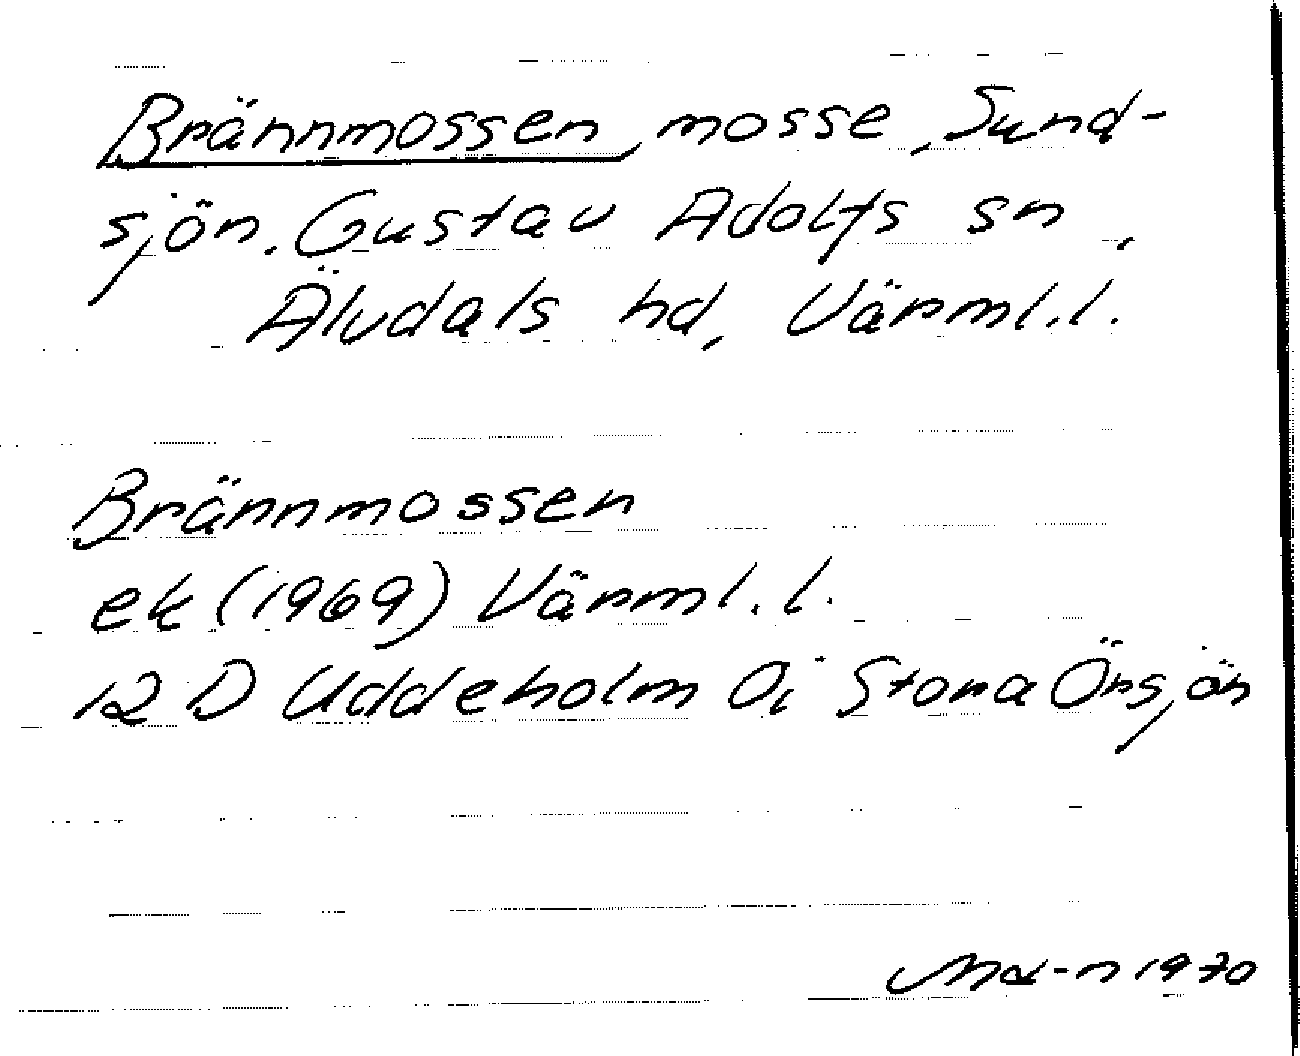 Brännmossen, mosse, Sund-
sjön. Gustav Adolfs sn,
Älvdals hd, Värml.l.
Brännmossen
ek (1969) Värml.l.
12 D Uddeholm 0i Stora Örsjön
1970